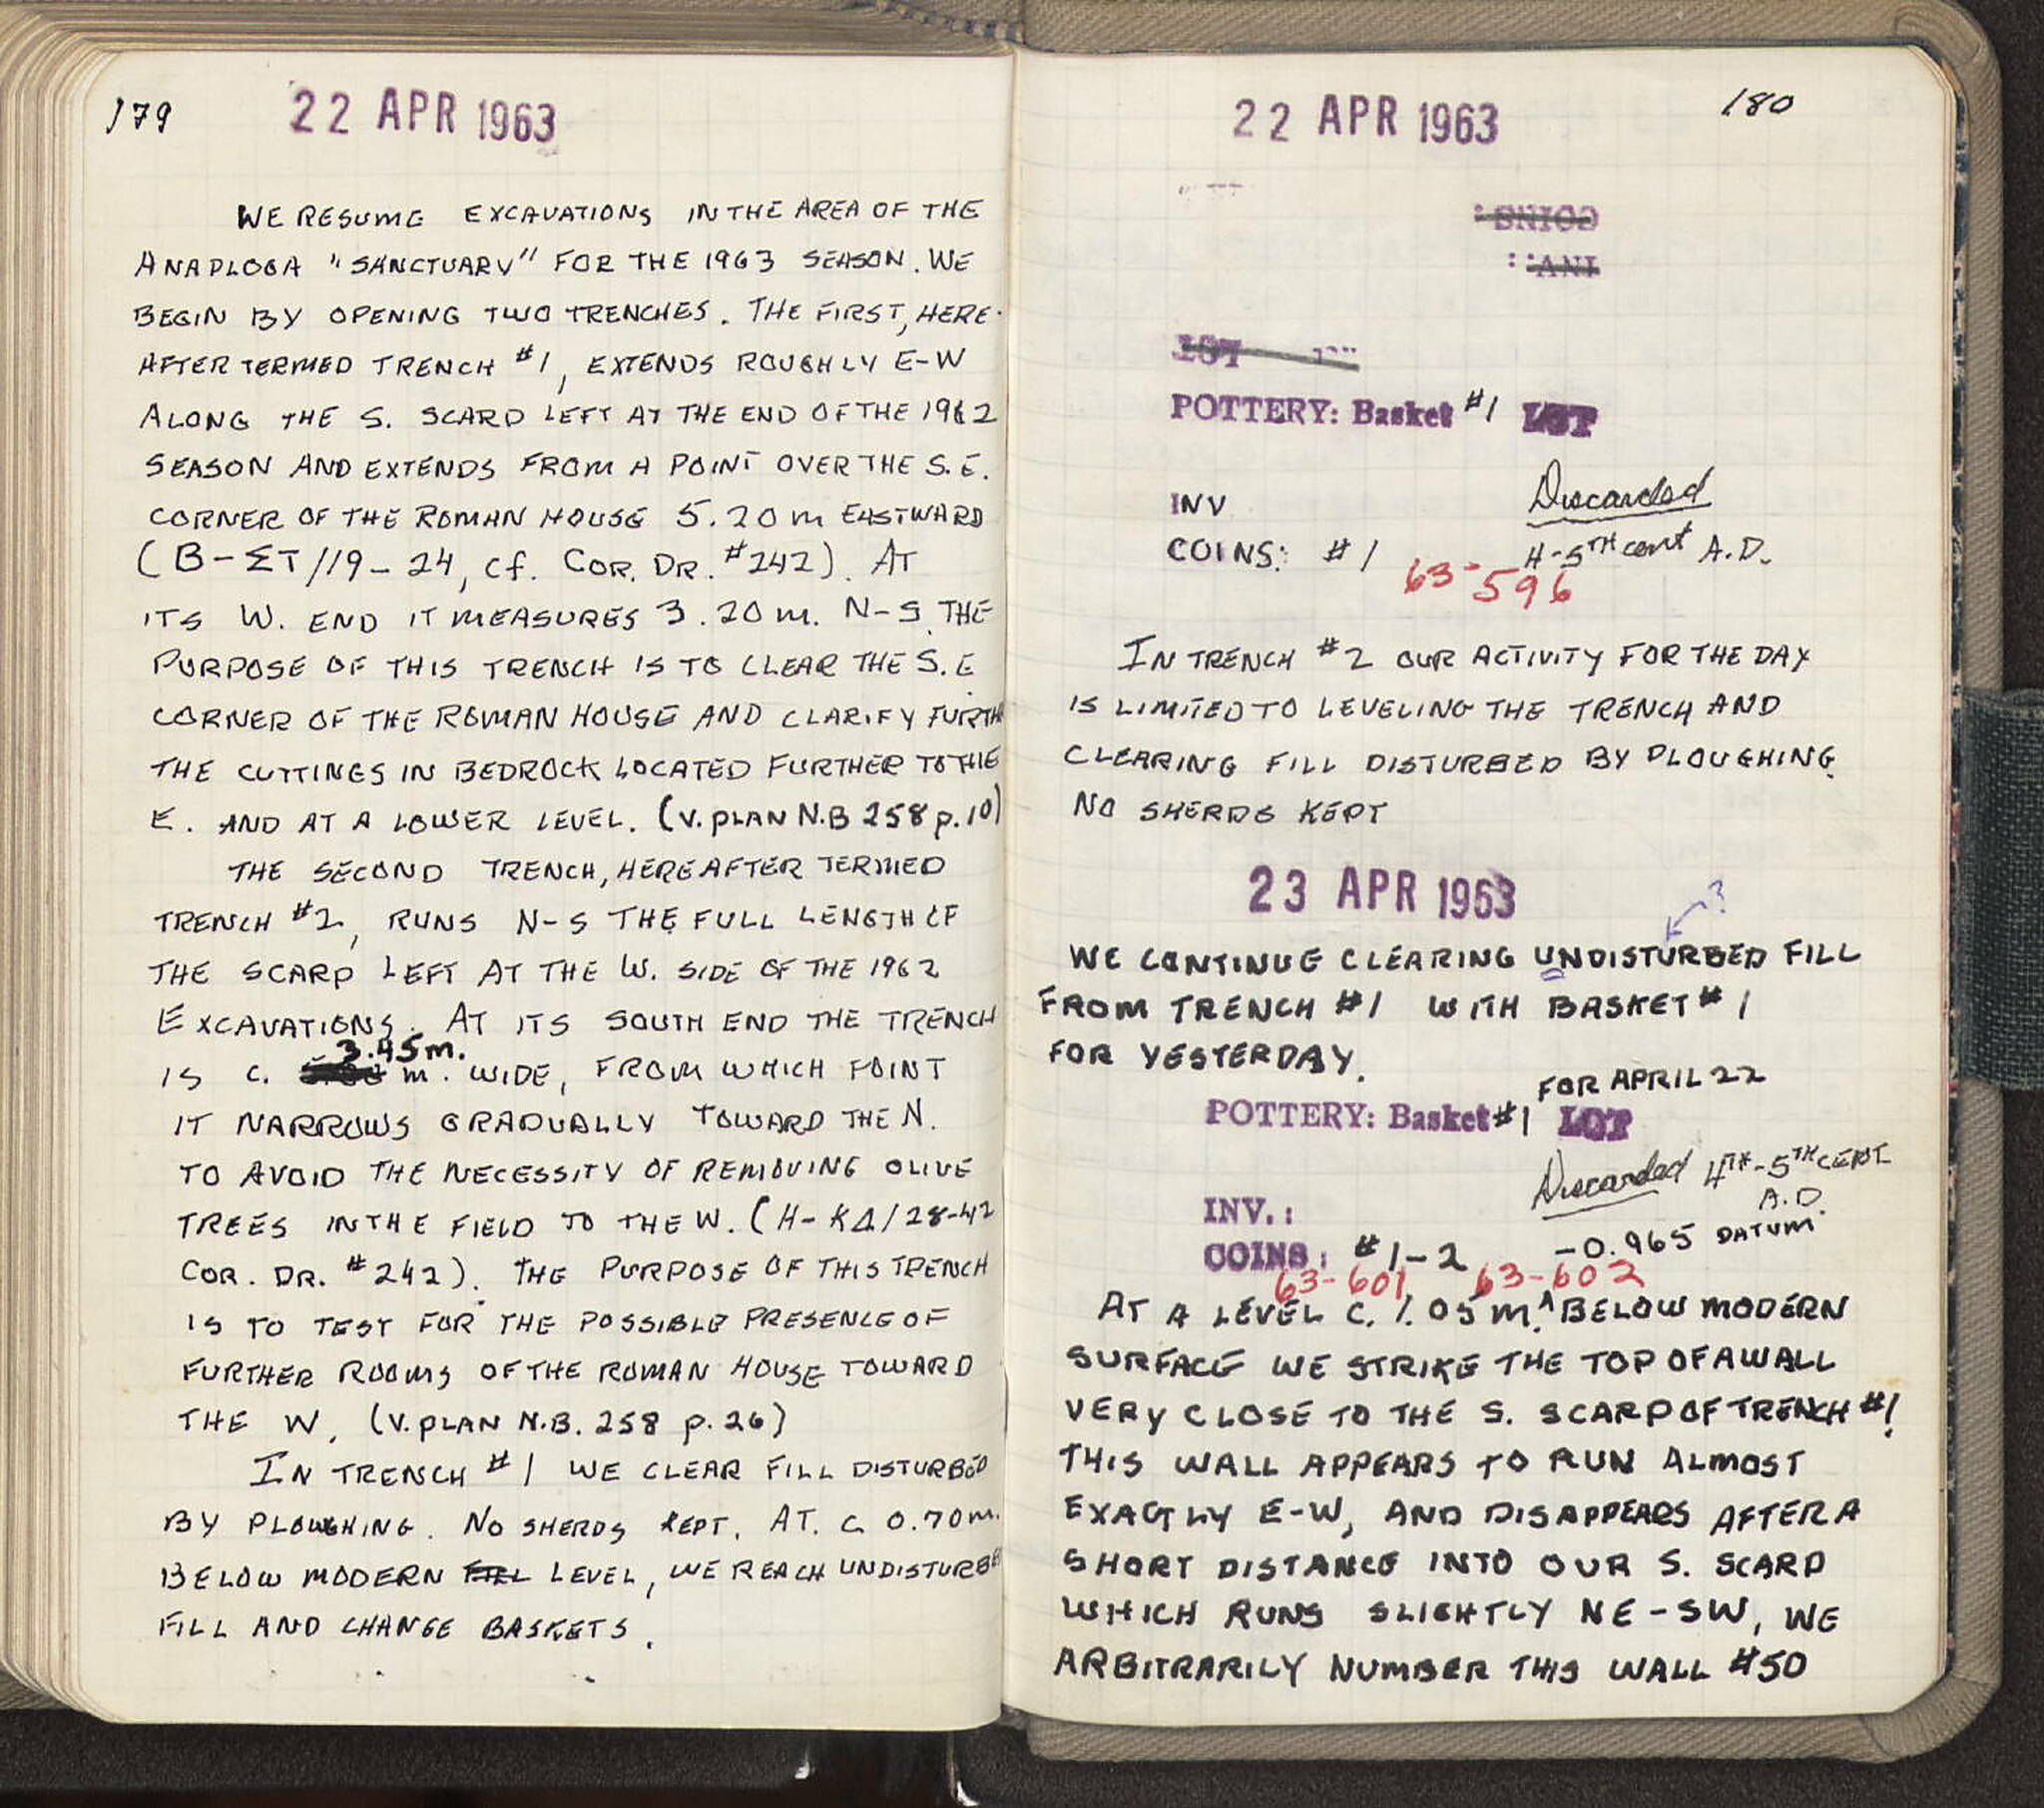 179
22 APR 1963
WE RESUME EXCAVATIONS IN THE AREA OF THE
ANAPLOGA "SANCTUARY" FOR THE 1963 SEASON. WE
BEGIN BY OPENING TWO TRENCHES. THE FIRST, HERE-
AFTER TERMED TRENCH #1, EXTENDS ROUGHLY E-W
ALONG THE S. SCARP LEFT AT THE END OF THE 1962
SEASON AND EXTENDS FROM A POINT OVER THE S.E.
CORNER OF THE ROMAN HOUSE 5.20 m EASTWARD
(B-ΣT/19-24, cf. COR. DR. #242). AT
ITS W. END IT MEASURES 3.20 m. N-S. THE
PURPOSE OF THIS TRENCH IS TO CLEAR THE S.E.
CORNER OF THE ROMAN HOUSE AND CLARIFY FURTH
THE CUTTINGS IN BEDROCK LOCATED FURTHER TO THE
E. AND AT A LOWER LEVEL. (V. PLAN N.B 258 p.10)
THE SECOND TRENCH, HEREAFTER TERMED
TRENCH #2, RUNS N-S THE FULL LENGTH OF
THE SCARP LEFT AT THE W. SIDE OF THE 1962
EXCAVATIONS. AT ITS SOUTH END THE TRENCH
3.45m.
IS C. m. WIDE, FROM WHICH POINT
IT NARROWS GRADUALLY TOWARD THE N.
TO AVOID THE NECESSITY OF REMOVING OLIVE
TREES IN THE FIELD TO THE W. (H-KΔ/28-42
COR. DR. #242). THE PURPOSE OF THIS TRENCH
IS TO TEST FOR THE POSSIBLE PRESENCE OF
FURTHER ROOMS OF THE ROMAN HOUSE TOWARD
THE W. (V. PLAN N.B. 258 p. 26)
IN TRENCH #1 WE CLEAR FILL DISTURBED
BY PLOUGHING. NO SHERDS KEPT. AT. C. 0.70 m.
BELOW MODERN FILL LEVEL, WE REACH UNDISTURBE
FILL AND CHANGE BASKETS.
180
22 APR 1963
COINS:
INV.:
LOT
POTTERY: Basket #1 LOT
Discarded
INV
4-5TH cent A.D.
COINS: #1
63-596
IN TRENCH #2 OUR ACTIVITY FOR THE DAY
IS LIMITED TO LEVELING THE TRENCH AND
CLEARING FILL DISTURBED BY PLOUGHING.
NO SHERDS KEPT
23 APR 1963
?
WE CONTINUE CLEARING UNDISTURBED FILL
FROM TRENCH #1 WITH BASKET #1
FOR YESTERDAY.
FOR APRIL 22
POTTERY: Basket #1 LOT
Discarded 4TH-5TH CENT.
A.D.
INV.:
COINS: #1-2 -0.965 DATUM
63-601 63-602
AT A LEVEL C. 1.05 m.^ BELOW MODERN
SURFACE WE STRIKE THE TOP OF A WALL
VERY CLOSE TO THE S. SCARP OF TRENCH #1.
THIS WALL APPEARS TO RUN ALMOST
EXACTLY E-W, AND DISAPPEARS AFTER A
SHORT DISTANCE INTO OUR S. SCARP
WHICH RUNS SLIGHTLY NE-SW, WE
ARBITRARILY NUMBER THIS WALL #50